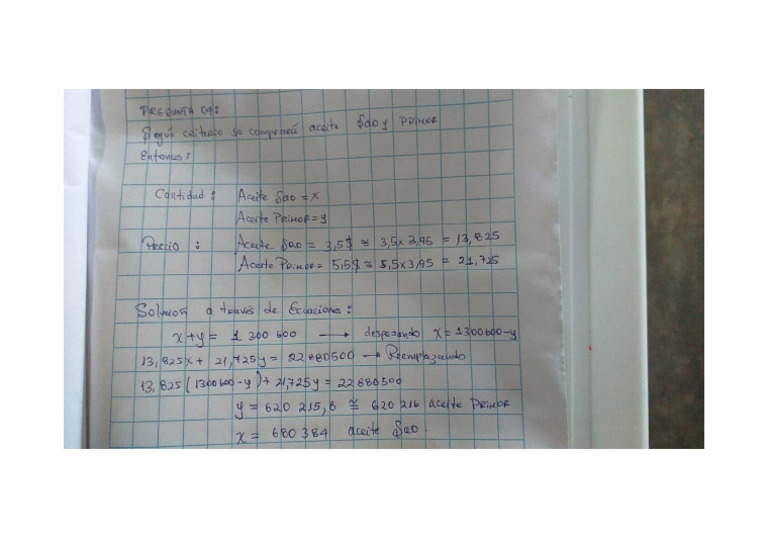 PREGUNTA 04:
Según criterio se compraría aceite Sao y PRIMOR
Entonces:
Cantidad: Aceite Sao = x
Aceite PRIMOR = y
Precio : Aceite Sao = 3,5$ ≅ 3,5 x 3,95 = 13,825
Aceite PRIMOR = 5,5$ ≅ 5,5 x 3,95 = 21,725
Solución a través de Ecuaciones:
x + y = 1 300 600 → despejando x = 1300600 - y
13,825x + 21,725y = 22 880500 → Reemplazando
13,825(1300600 - y) + 21,725y = 22880500
y = 620 215,8 ≅ 620 216 aceite PRIMOR
x = 680 384 aceite Sao.